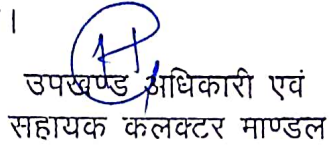 ।
उपखण्ड अधिकारी एवं
सहायक कलक्टर माण्डल